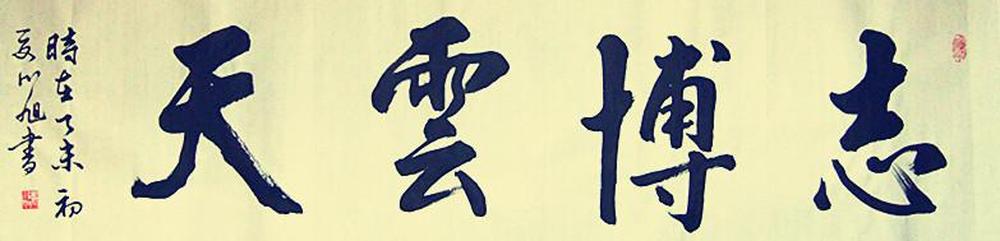 志博雲天
時在乙未初
夏川旭書